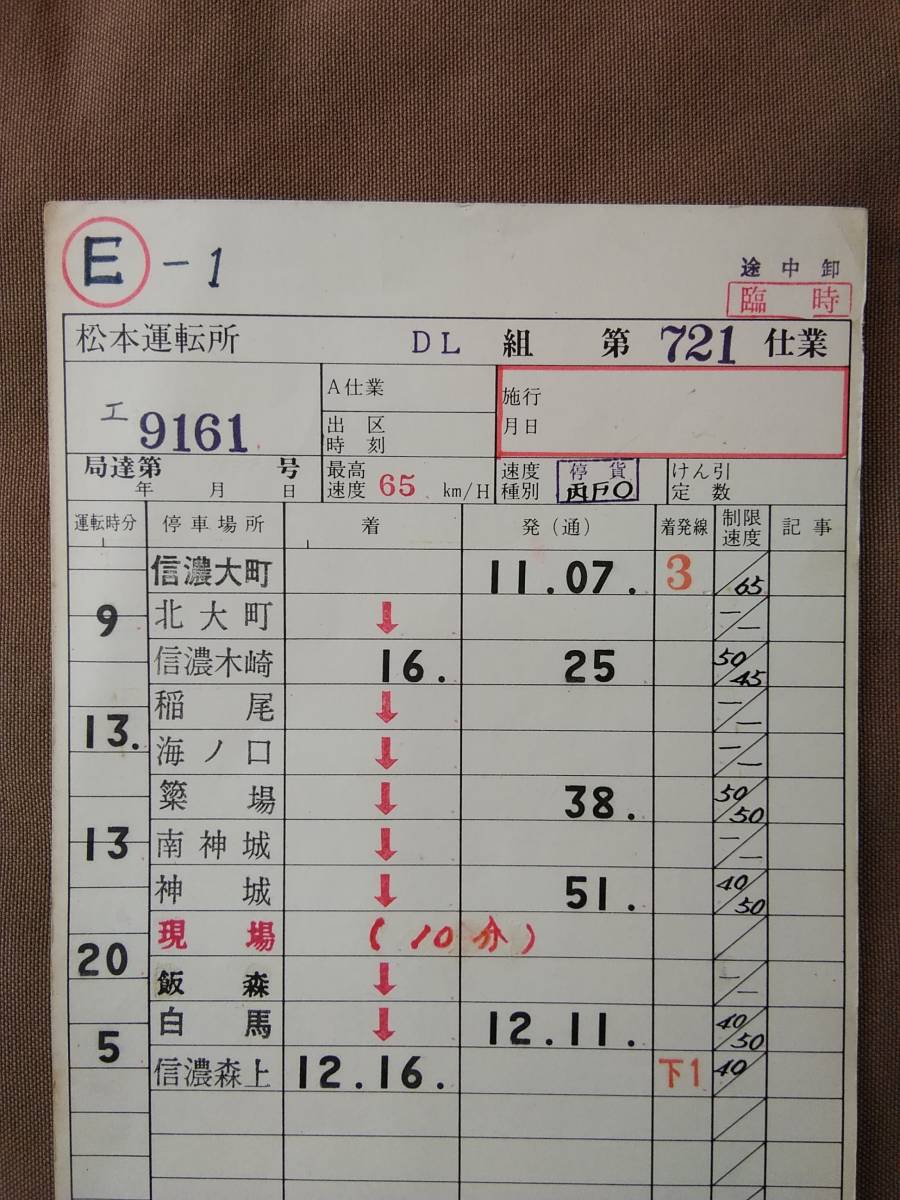 E - 1
途中卸
臨時
松本運転所 DL 組 第 721 仕業
エ 9161
A仕業
出区時刻
施行月日
局達第 号
年 月 日
最高速度 65 km/H
速度種別 停貨
けん引定数
運転時分 停車場所 着 発(通) 着発線 制限速度 記事
信濃大町 11.07. 3 65
9 北大町 ↓ — —
信濃木崎 16. 25 50 45
稲尾 ↓ — —
13. 海ノ口 ↓ — —
簗場 ↓ 38. 50 50
13 南神城 ↓ — —
神城 ↓ 51. 40 50
現場 (10分)
20 飯森 ↓ — —
白馬 ↓ 12.11. 40 50
5 信濃森上 12.16. 下1 40